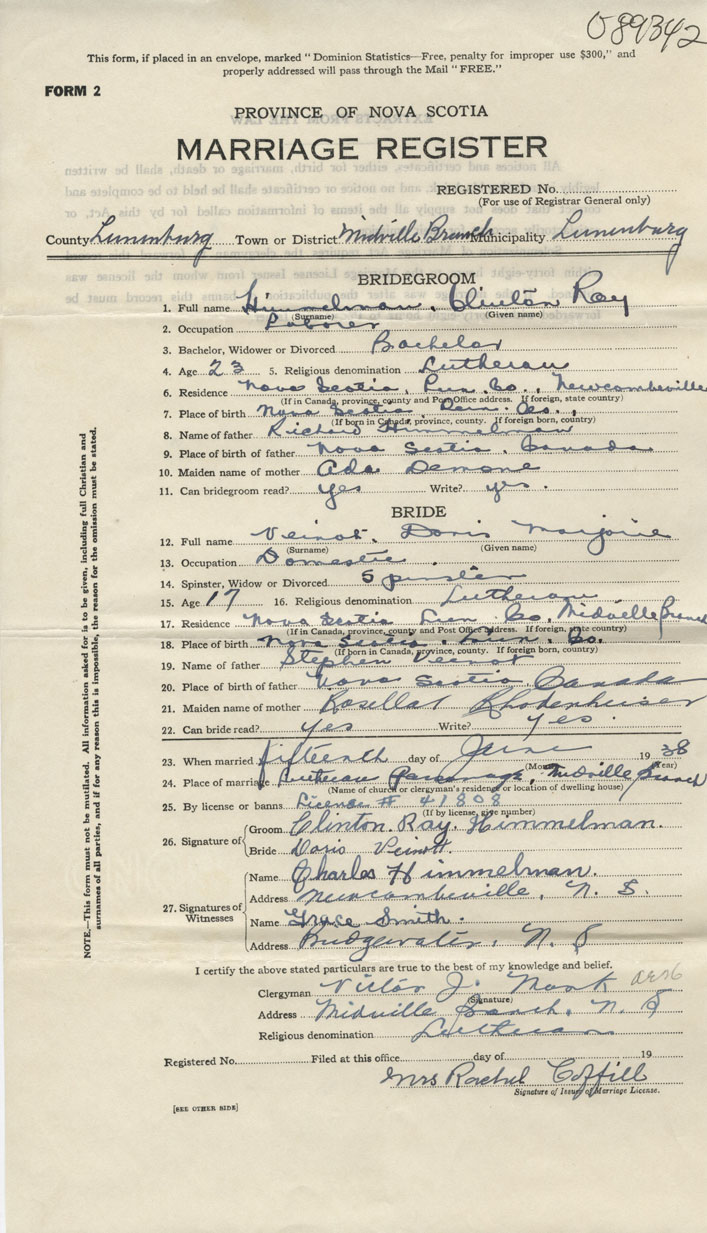 089342
This form, if placed in an envelope, marked "Dominion Statistics—Free, penalty for improper use $300," and
properly addressed will pass through the Mail "FREE."
FORM 2
PROVINCE OF NOVA SCOTIA
MARRIAGE REGISTER
REGISTERED No.
(For use of Registrar General only)
County Lunenburg Town or District Midville Branch Municipality Lunenburg
BRIDEGROOM
1. Full name Himmelman, Clinton Ray
(Surname) (Given name)
2. Occupation Laborer
3. Bachelor, Widower or Divorced Bachelor
4. Age 23 5. Religious denomination Lutheran
6. Residence Nova Scotia, Lun. Co., Newcombeville
(If in Canada, province, county and Post Office address. If foreign, state country)
7. Place of birth Nova Scotia, Lun. Co.,
(If born in Canada, province, county. If foreign born, country)
8. Name of father Richard Himmelman
9. Place of birth of father Nova Scotia, Canada
10. Maiden name of mother Ada Demone
11. Can bridegroom read? yes Write? yes.
BRIDE
12. Full name Veinot, Doris Marjorie
(Surname) (Given name)
13. Occupation Domestic
14. Spinster, Widow or Divorced Spinster
15. Age 17 16. Religious denomination Lutheran
17. Residence Nova Scotia Lun. Co., Midville Branch
(If in Canada, province, county and Post Office address. If foreign, state country)
18. Place of birth Nova Scotia, Lun. Co.
(If born in Canada, province, county. If foreign born, country)
19. Name of father Stephen Veinot
20. Place of birth of father Nova Scotia, Canada
21. Maiden name of mother Rosella Rhodenhiser
22. Can bride read? yes Write? yes.
23. When married fifteenth day of June 1938
(Month) (Year)
24. Place of marriage Lutheran Parsonage, Midville Branch
(Name of church or clergyman's residence or location of dwelling house)
25. By license or banns License # 41808
(If by license, give number)
26. Signature of Groom Clinton Ray Himmelman.
Bride Doris Veinott.
27. Signatures of Witnesses Name Charles Himmelman.
Address Newcombeville, N. S.
Name Grace Smith.
Address Bridgewater, N. S
I certify the above stated particulars are true to the best of my knowledge and belief.
Clergyman Victor J. Monk
(Signature)
Address Midville Branch, N. S
Religious denomination Lutheran
Registered No. Filed at this office day of 19
Mrs Rachel Coffill
Signature of Issuer of Marriage License.
[SEE OTHER SIDE]
NOTE.—This form must not be mutilated. All information asked for is to be given, including full Christian and
surnames of all parties, and if for any reason this is impossible, the reason for the omission must be stated.